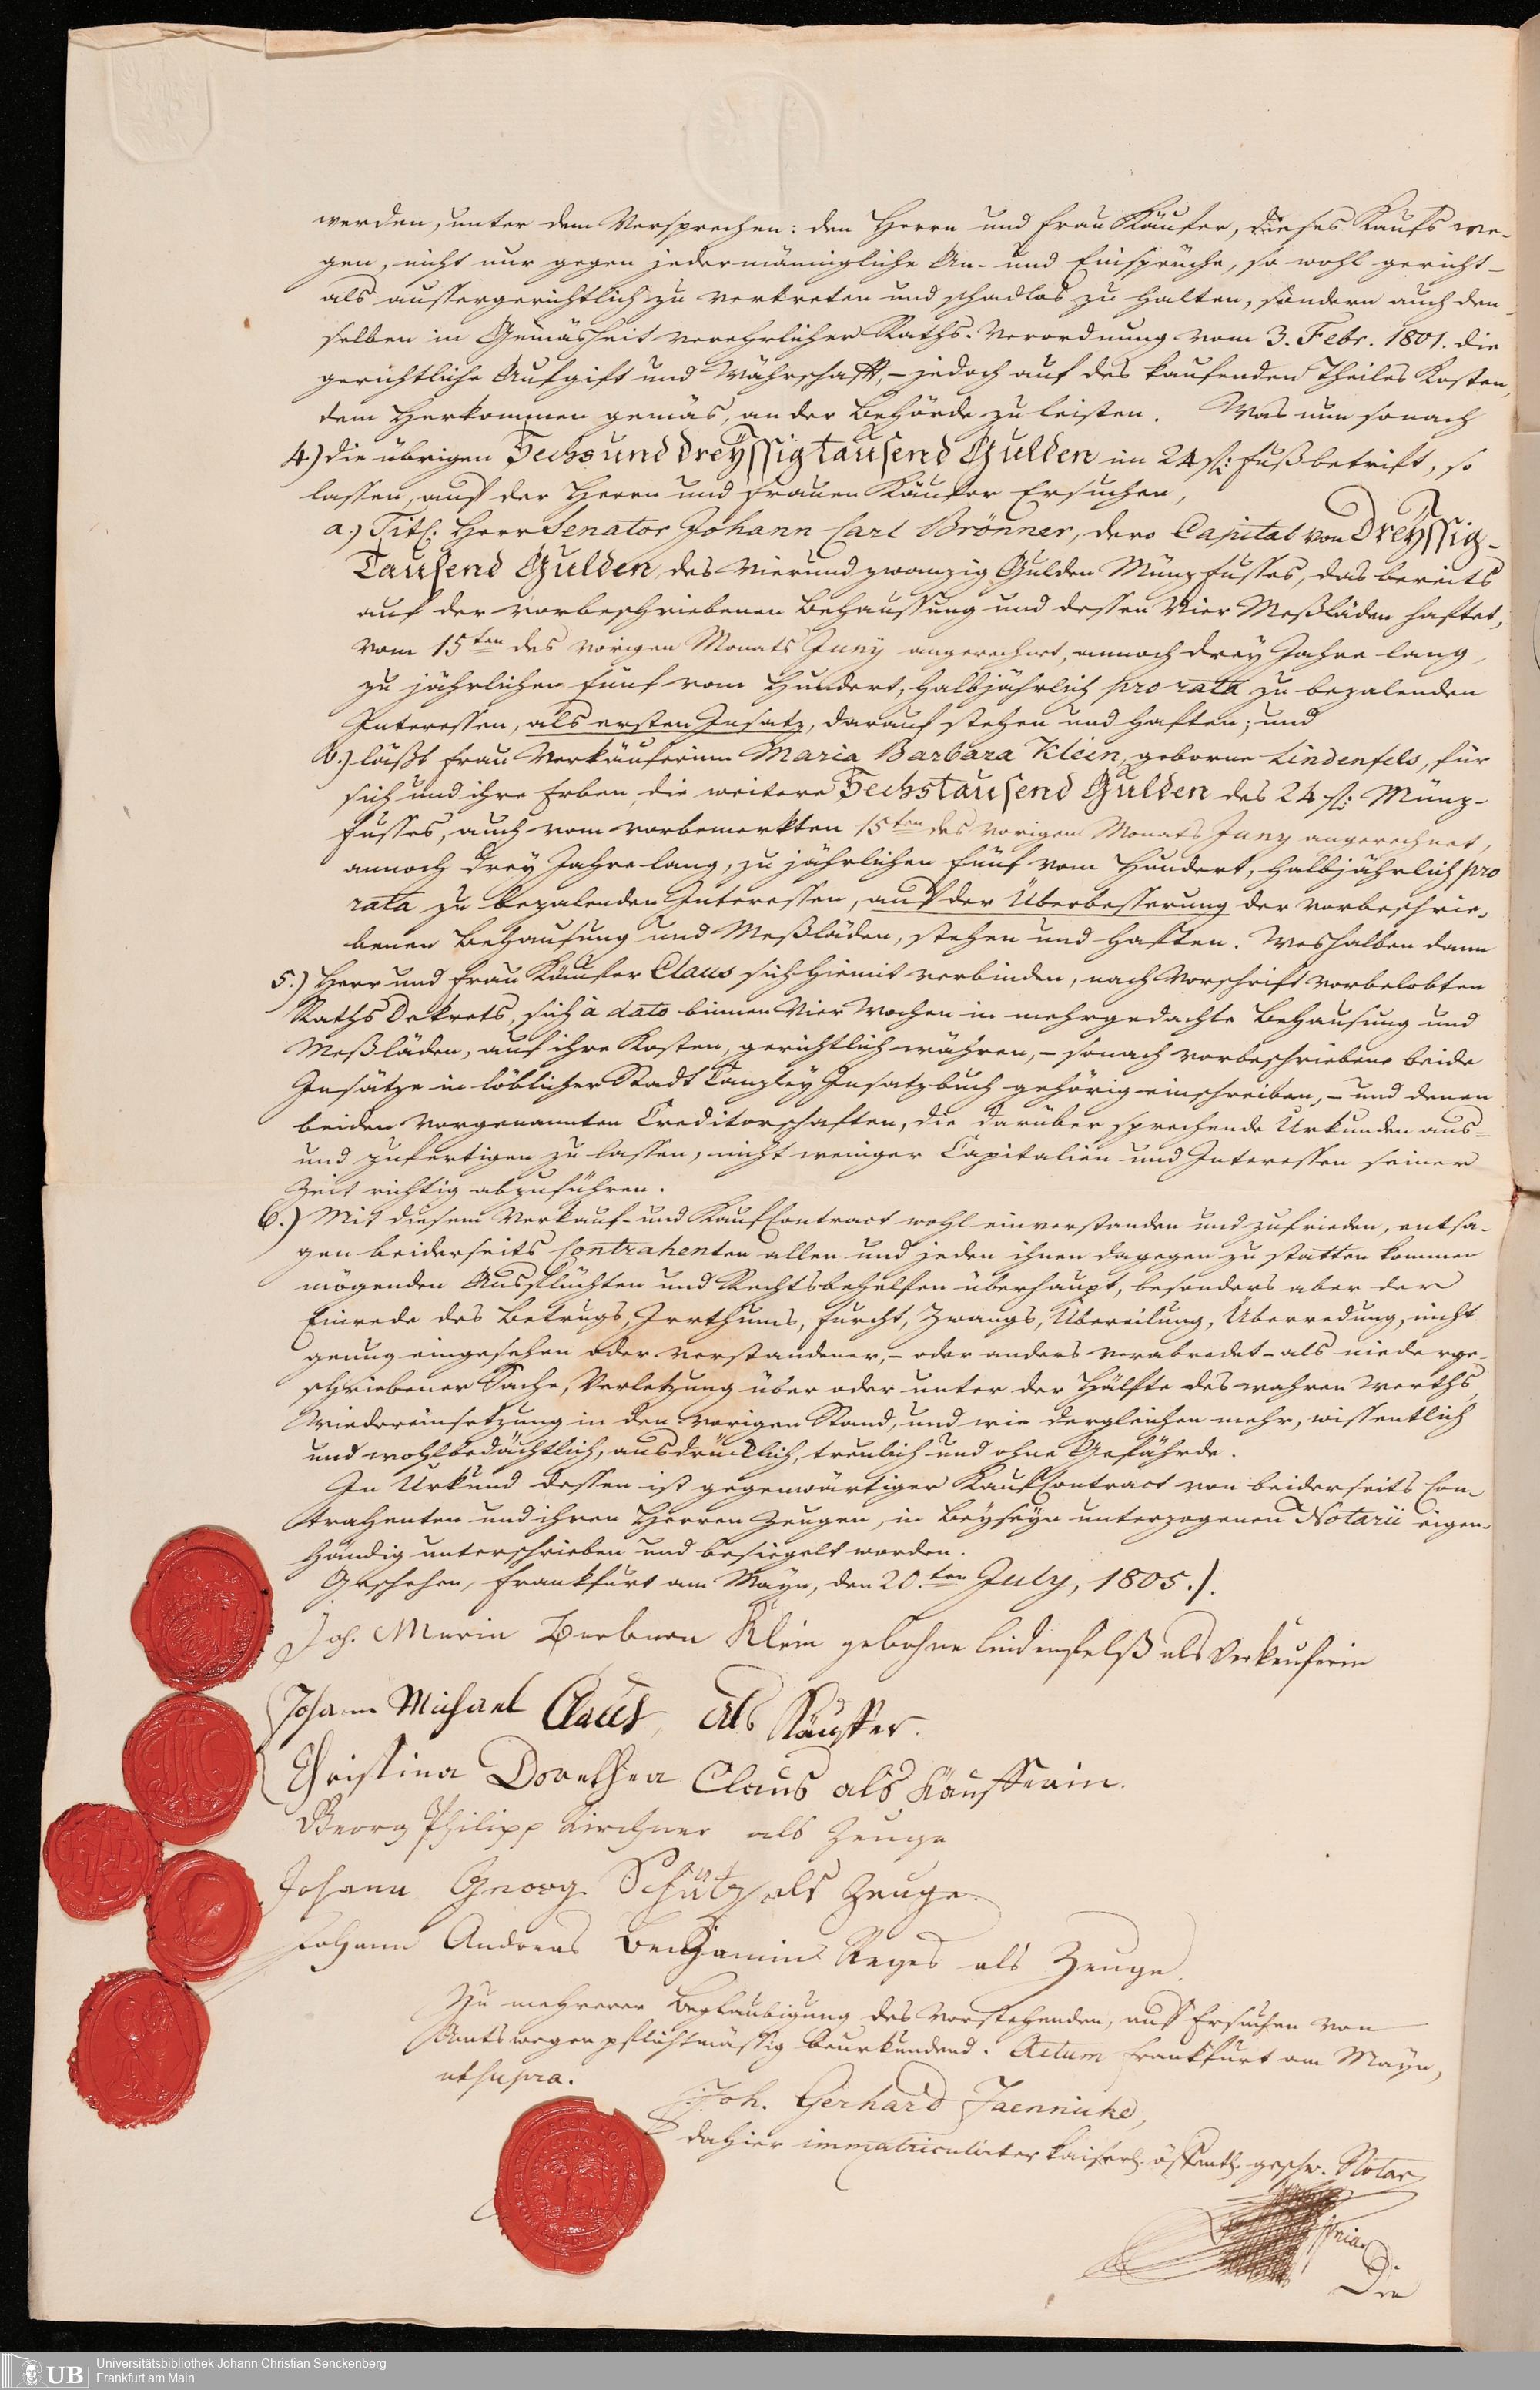 werden, unter dem Versprechen: den Herrn und Frau Käufer, dieses Kaufs we-
gen, nicht nur gegen jedermännigliche An- und Einsprüche, so wohl gericht-
als aussergerichtlich zu vertreten und schadlos zu halten, sondern auch den-
selben in Gemäsheit verehrlicher Raths-Verordnung vom 3. Febr. 1801. die
gerichtliche Aufgift und Währschafft, – jedoch auf des kaufenden Theiles Kosten,
dem Herkommen gemäs, an der Behörde zu leisten. Was nun sonach
4.) die übrigen Sechs und dreyssig tausend Gulden im 24 fl: Fuß betrift, so
lassen, auf der Herrn und Frauen Käufer Ersuchen,
a.) Titl: Herr Senator Johann Carl Brönner, dero Capital von Dreyssig-
Tausend Gulden, des Vierundzwanzig Gulden Münzfusses, das bereits
auf der vorbeschriebenen Behaussung und dessen Vier Meßläden haftet,
vom 15ten des vorigen Monats Juny angerechnet, annoch drey Jahre lang,
zu jährlichen fünf vom Hundert, halbjährlich pro rata zu bezalenden
Interessen, als ersten Insatz, darauf stehen und haften; und
b.) läßt Frau Verkäuferinn Maria Barbara Klein, geborne Lindenfels, für
sich und ihre Erben, die weitere Sechstausend Gulden des 24 fl: Münz-
fusses, auch vom vorbemerkten 15ten des vorigen Monats Juny angerechnet,
annoch drey Jahre lang, zu jährlichen fünf vom Hundert, halbjährlich pro
rata zu bezalenden Interessen, auf der Überbesserung der vorbeschrie-
benen Behausung und Meßläden, stehen und haften. Weshalben dann
5.) Herr und Frau Käufer Claus sich hiemit verbinden, nach Vorschrift vorbelobten
Raths Dekrets, sich à dato binnen Vier Wochen in mehrgedachte Behausung und
Meßläden, auf ihre Kosten, gerichtlich währen, – sonach vorbeschriebene beide
Insätze in löblicher Stadt Canzley Insatzbuch gehörig einschreiben, – und denen
beiden vorgenannten Creditorschaften, die darüber sprechende Urkunden aus-
und zufertigen zu lassen, nicht weniger Capitalien und Interessen seiner
Zeit richtig abzuführen.
6.) Mit diesem Verkauf- und Kauf Contract wohl einverstanden und zufrieden, entsa-
gen beiderseits Contrahenten allen und jeden ihnen dagegen zu statten kommen
mögenden Ausflüchten und Rechtsbehelfen überhaupt, besonders aber der
Einrede des Betrugs, Irrthums, Furcht, Zwangs, Übereilung, Überredung, nicht
genug eingesehen oder verstandener, – oder anders verabredet- als niederge-
schriebener Sache, Verletzung über oder unter der Hälfte des wahren Werths,
Wiedereinsetzung in den vorigen Stand, und wie dergleichen mehr, wissentlich
und wohlbedächtlich, ausdrücklich, treulich und ohne Gefährde.
In Urkund dessen ist gegenwärtiger Kauf Contract von beiderseits Con-
trahenten und ihren Herren Zeugen, in Beyseyn unterzogenen Notarii eigen-
händig unterschrieben und besiegelt worden.
Geschehen, Frankfurt am Mayn, den 20.ten July, 1805./.
Joh. Maria Barbara Klein gebohrne Lindenfelß als Verkeuferin
Johann Michael Claus, als Käuffer.
Christina Dorothea Claus als Käufferin.
Georg Philipp Kirchner als Zeuge
Johann Georg Schütz als Zeuge.
Johann Andreas Benjamin Reges als Zeuge.
Zu mehrerer Beglaubigung des Vorstehenden, auf Ersuchen von
Amtswegen pflichtmässig beurkundend. Actum Frankfurt am Mayn,
ut supra.
Joh. Gerhard Jaennicke,
dahier immatriculirter kaiserl. öffentl. geschw. Notar
Die
Universitätsbibliothek Johann Christian Senckenberg
Frankfurt am Main
UB